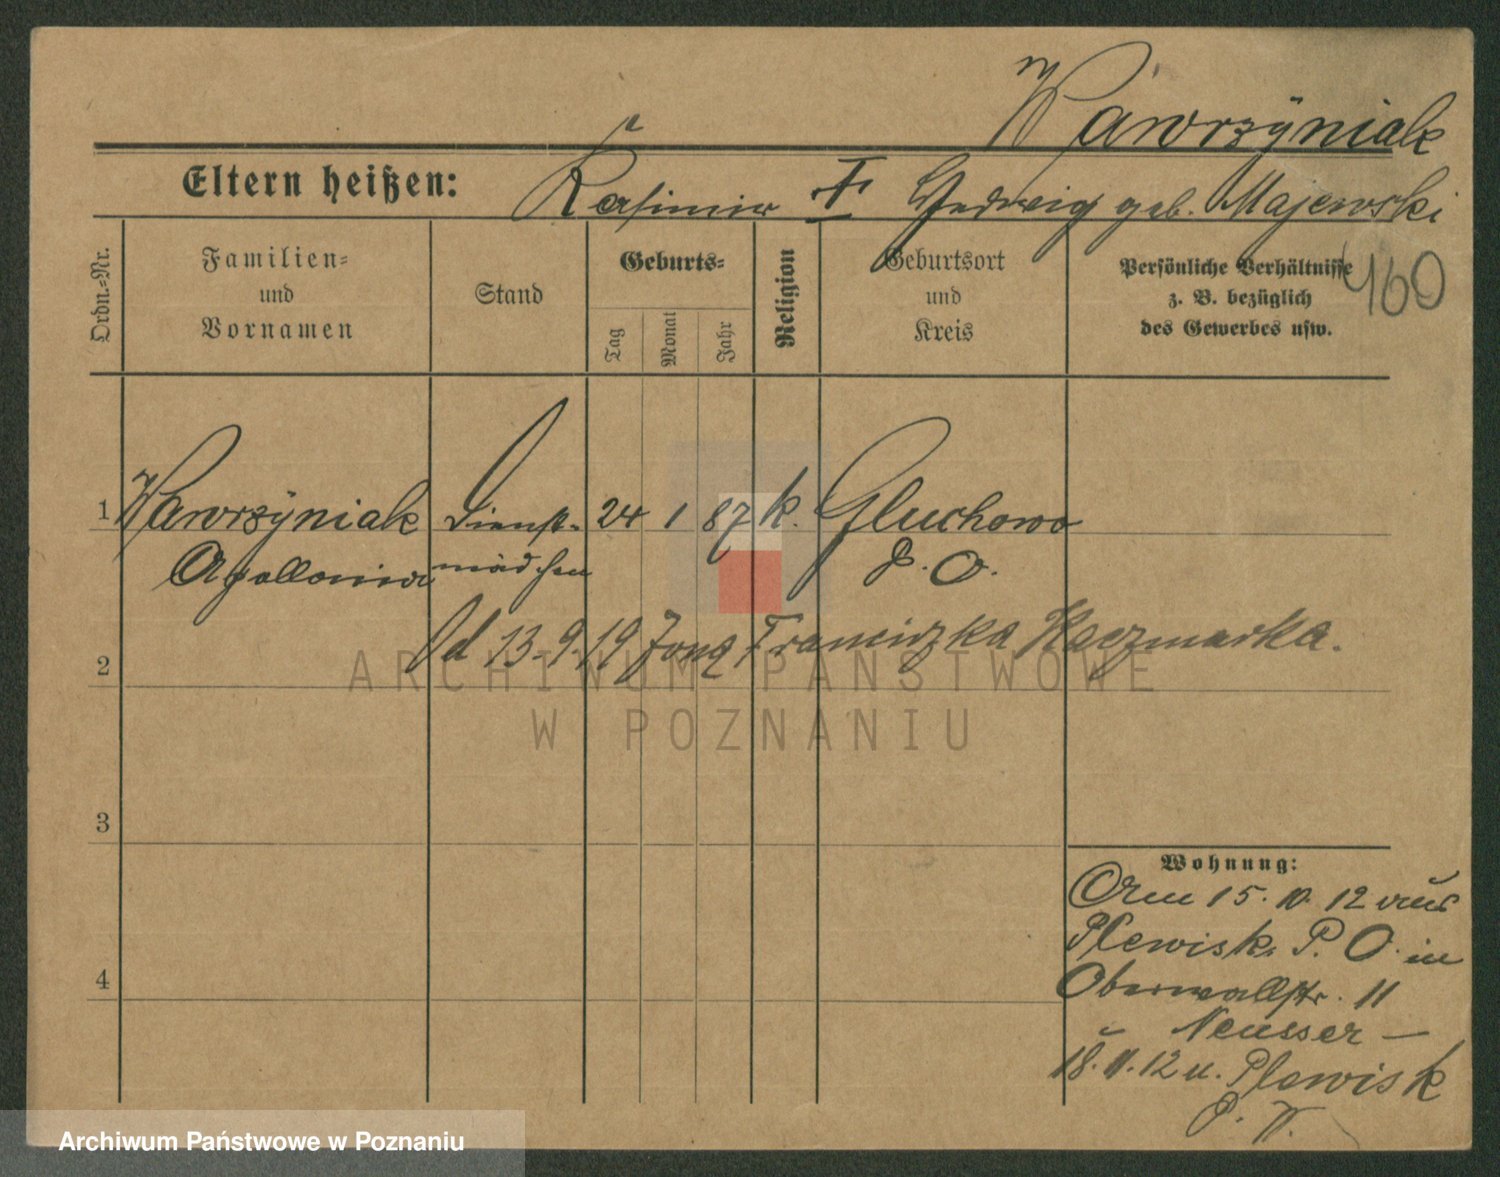 Wawrzÿniak
Eltern heißen: Kasimir † Hedwig geb. Majewski
160
Ordn.-Nr.
Familien- und Vornamen
Stand
Geburts-
Tag
Monat
Jahr
Religion
Geburtsort und Kreis
Persönliche Verhältnisse
z. B. bezüglich
des Gewerbes usw.
1 Wawrzÿniak Dienst- 24 1 87 k. Gluchowo
Apollonia mädchen P. O.
Od 13-9-19 żoną Franciszka Kaczmarka.
2
3
4
Wohnung:
Am 15. 10. 12 aus
Plewisk P. O. in
Oberwallstr. 11
Neusser —
18. 11. 12 n. Plewisk
P. W.
ARCHIWUM PAŃSTWOWE
W POZNANIU
Archiwum Państwowe w Poznaniu